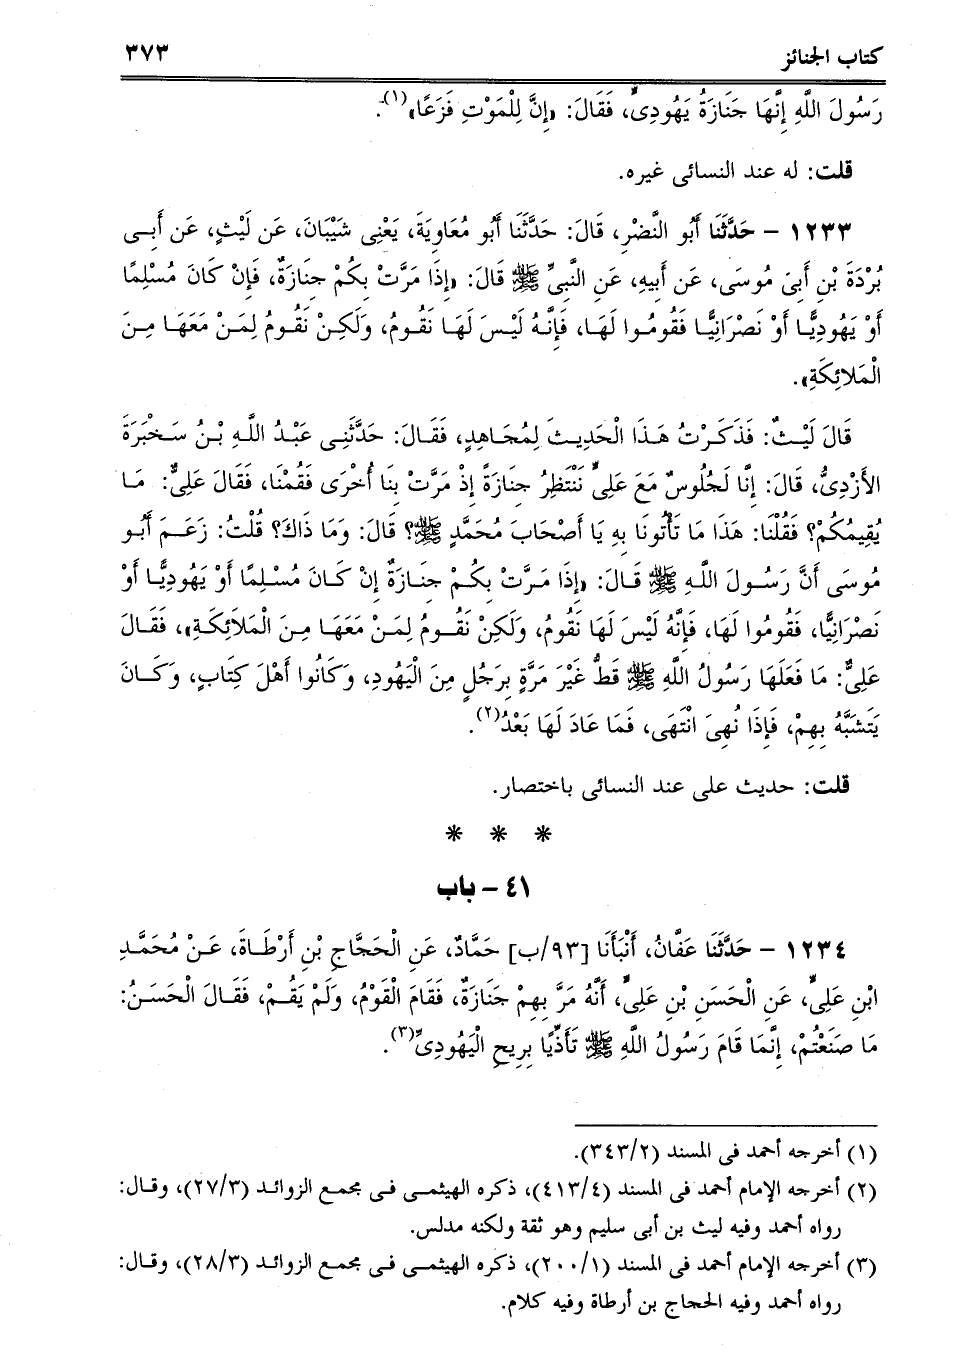 كتاب الجنائز ٣٧٣
رَسُولَ اللَّهِ إِنَّهَا جَنَازَةُ يَهُودِىٍّ، فَقَالَ: «إِنَّ لِلْمَوْتِ فَزَعًا»(١).
قلت: له عند النسائى غيره.
١٢٣٣ – حَدَّثَنَا أَبُو النَّضْرِ، قَالَ: حَدَّثَنَا أَبُو مُعَاوِيَةَ، يَعْنِى شَيْبَانَ، عَن لَيْثٍ، عَن أَبِى
بُرْدَةَ بْنِ أَبِىَ مُوسَى، عَن أَبِيهِ، عَنِ النَّبِىِّ ﷺ قَالَ: «إِذَا مَرَّتْ بِكُمْ جِنَازَةٌ، فَإِنْ كَانَ مُسْلِمًا
أَوْ يَهُودِيًّا أَوْ نَصْرَانِيًّا فَقُومُوا لَهَا، فَإِنَّهُ لَيْسَ لَهَا نَقُومُ، وَلَكِنْ نَقُومُ لِمَنْ مَعَهَا مِنَ
الْمَلائِكَةِ».
قَالَ لَيْثٌ: فَذَكَرْتُ هَذَا الْحَدِيثَ لِمُجَاهِدٍ، فَقَالَ: حَدَّثَنِى عَبْدُ اللَّهِ بْنُ سَخْبَرَةَ
الأَزْدِىُّ، قَالَ: إِنَّا لَجُلُوسٌ مَعَ عَلِىٍّ نَنْتَظِرُ جِنَازَةً إِذْ مَرَّتْ بِنَا أُخْرَى فَقُمْنَا، فَقَالَ عَلِىٌّ: مَا
يُقِيمُكُمْ؟ فَقُلْنَا: هَذَا مَا تَأْتُونَا بِهِ يَا أَصْحَابَ مُحَمَّدٍ ﷺ؟ قَالَ: وَمَا ذَاكَ؟ قُلْتُ: زَعَمَ أَبُو
مُوسَى أَنَّ رَسُولَ اللَّهِ ﷺ قَالَ: «إِذَا مَرَّتْ بِكُمْ جِنَازَةٌ إِنْ كَانَ مُسْلِمًا أَوْ يَهُودِيًّا أَوْ
نَصْرَانِيًّا، فَقُومُوا لَهَا، فَإِنَّهُ لَيْسَ لَهَا نَقُومُ، وَلَكِنْ نَقُومُ لِمَنْ مَعَهَا مِنَ الْمَلَائِكَةِ»، فَقَالَ
عَلِىٌّ: مَا فَعَلَهَا رَسُولُ اللَّهِ ﷺ قَطُّ غَيْرَ مَرَّةٍ بِرَجُلٍ مِنَ الْيَهُودِ، وَكَانُوا أَهْلَ كِتَابٍ، وَكَانَ
يَتَشَبَّهُ بِهِمْ، فَإِذَا نُهِىَ انْتَهَى، فَمَا عَادَ لَهَا بَعْدُ(٢).
قلت: حديث على عند النسائى باختصار.
* * *
٤١ – باب
١٢٣٤ – حَدَّثَنَا عَفَّانُ، أَنْبَأَنَا [٩٣/ب] حَمَّادٌ، عَنِ الْحَجَّاجِ بْنِ أَرْطَاةَ، عَنْ مُحَمَّدِ
ابْنِ عَلِىٍّ، عَنِ الْحَسَنِ بْنِ عَلِىٍّ، أَنَّهُ مَرَّ بِهِمْ جَنَازَةٌ، فَقَامَ الْقَوْمُ، وَلَمْ يَقُمْ، فَقَالَ الْحَسَنُ:
مَا صَنَعْتُمْ، إِنَّمَا قَامَ رَسُولُ اللَّهِ ﷺ تَأَذِّيًا بِرِيحِ الْيَهُودِىِّ(٣).
(١) أخرجه أحمد فى المسند (٣٤٣/٢).
(٢) أخرجه الإمام أحمد فى المسند (٤١٣/٤)، ذكره الهيثمى فى مجمع الزوائد (٢٧/٣)، وقال:
رواه أحمد وفيه ليث بن أبى سليم وهو ثقة ولكنه مدلس.
(٣) أخرجه الإمام أحمد فى المسند (٢٠٠/١)، ذكره الهيثمى فى مجمع الزوائد (٢٨/٣)، وقال:
رواه أحمد وفيه الحجاج بن أرطاة وفيه كلام.